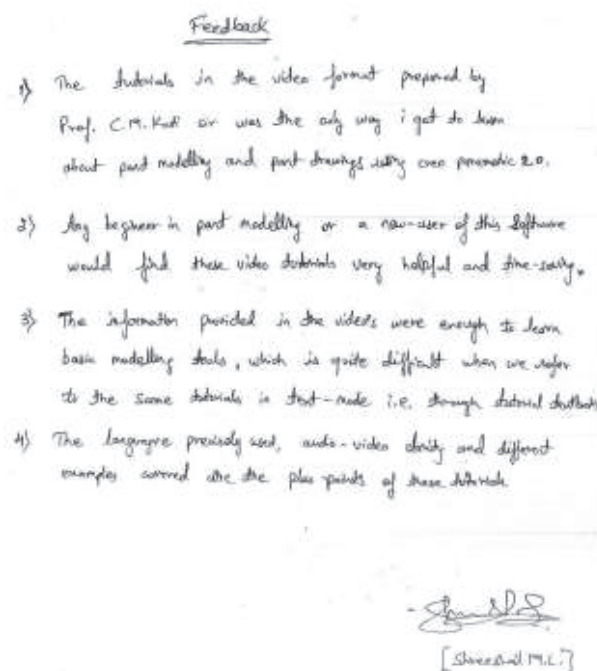 Feedback
1) The tutorials in the video format prepared by
Prof. C.M. sir was the only way i got to learn
about part modelling and part drawings using creo parametric 2.0.
2) Any beginner in part modelling or a new-user of this Software
would find these video tutorials very helpful and time-saving.
3) The information provided in the videos were enough to learn
basic modelling tools, which is quite difficult when we refer
to the same tutorials in text-mode i.e. through tutorial textbook
4) The language precisely used, audio-video clarity and different
examples covered are the plus-points of these tutorials
[ M.L.]